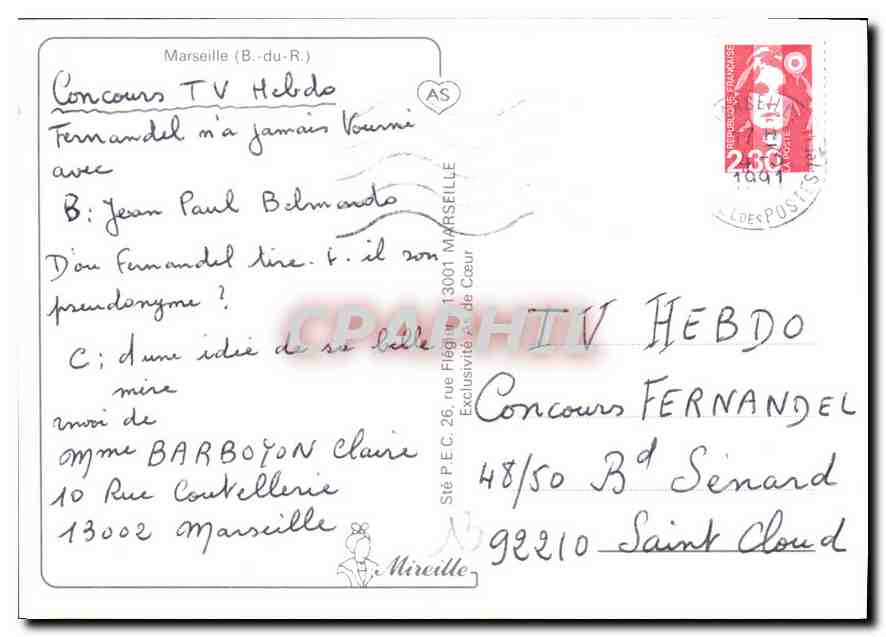 Marseille (B.-du-R.)
Concours TV Hebdo
Fernandel n'a jamais tourné
avec
B: Jean Paul Belmondo
D'où Fernandel tire-t-il son
pseudonyme?
C: d'une idée de sa belle
mère
envoi de
Mme BARBOYON Claire
10 Rue Coutellerie
13002 Marseille
Mireille
AS
Sté P.E.C. 26, rue Flégier 13001 MARSEILLE
Exclusivité As de Cœur
CPAPHIL
RÉPUBLIQUE FRANÇAISE
2,30
LA POSTE
1991
TV HEBDO
Concours FERNANDEL
48/50 Bd Sénard
92210 Saint Cloud